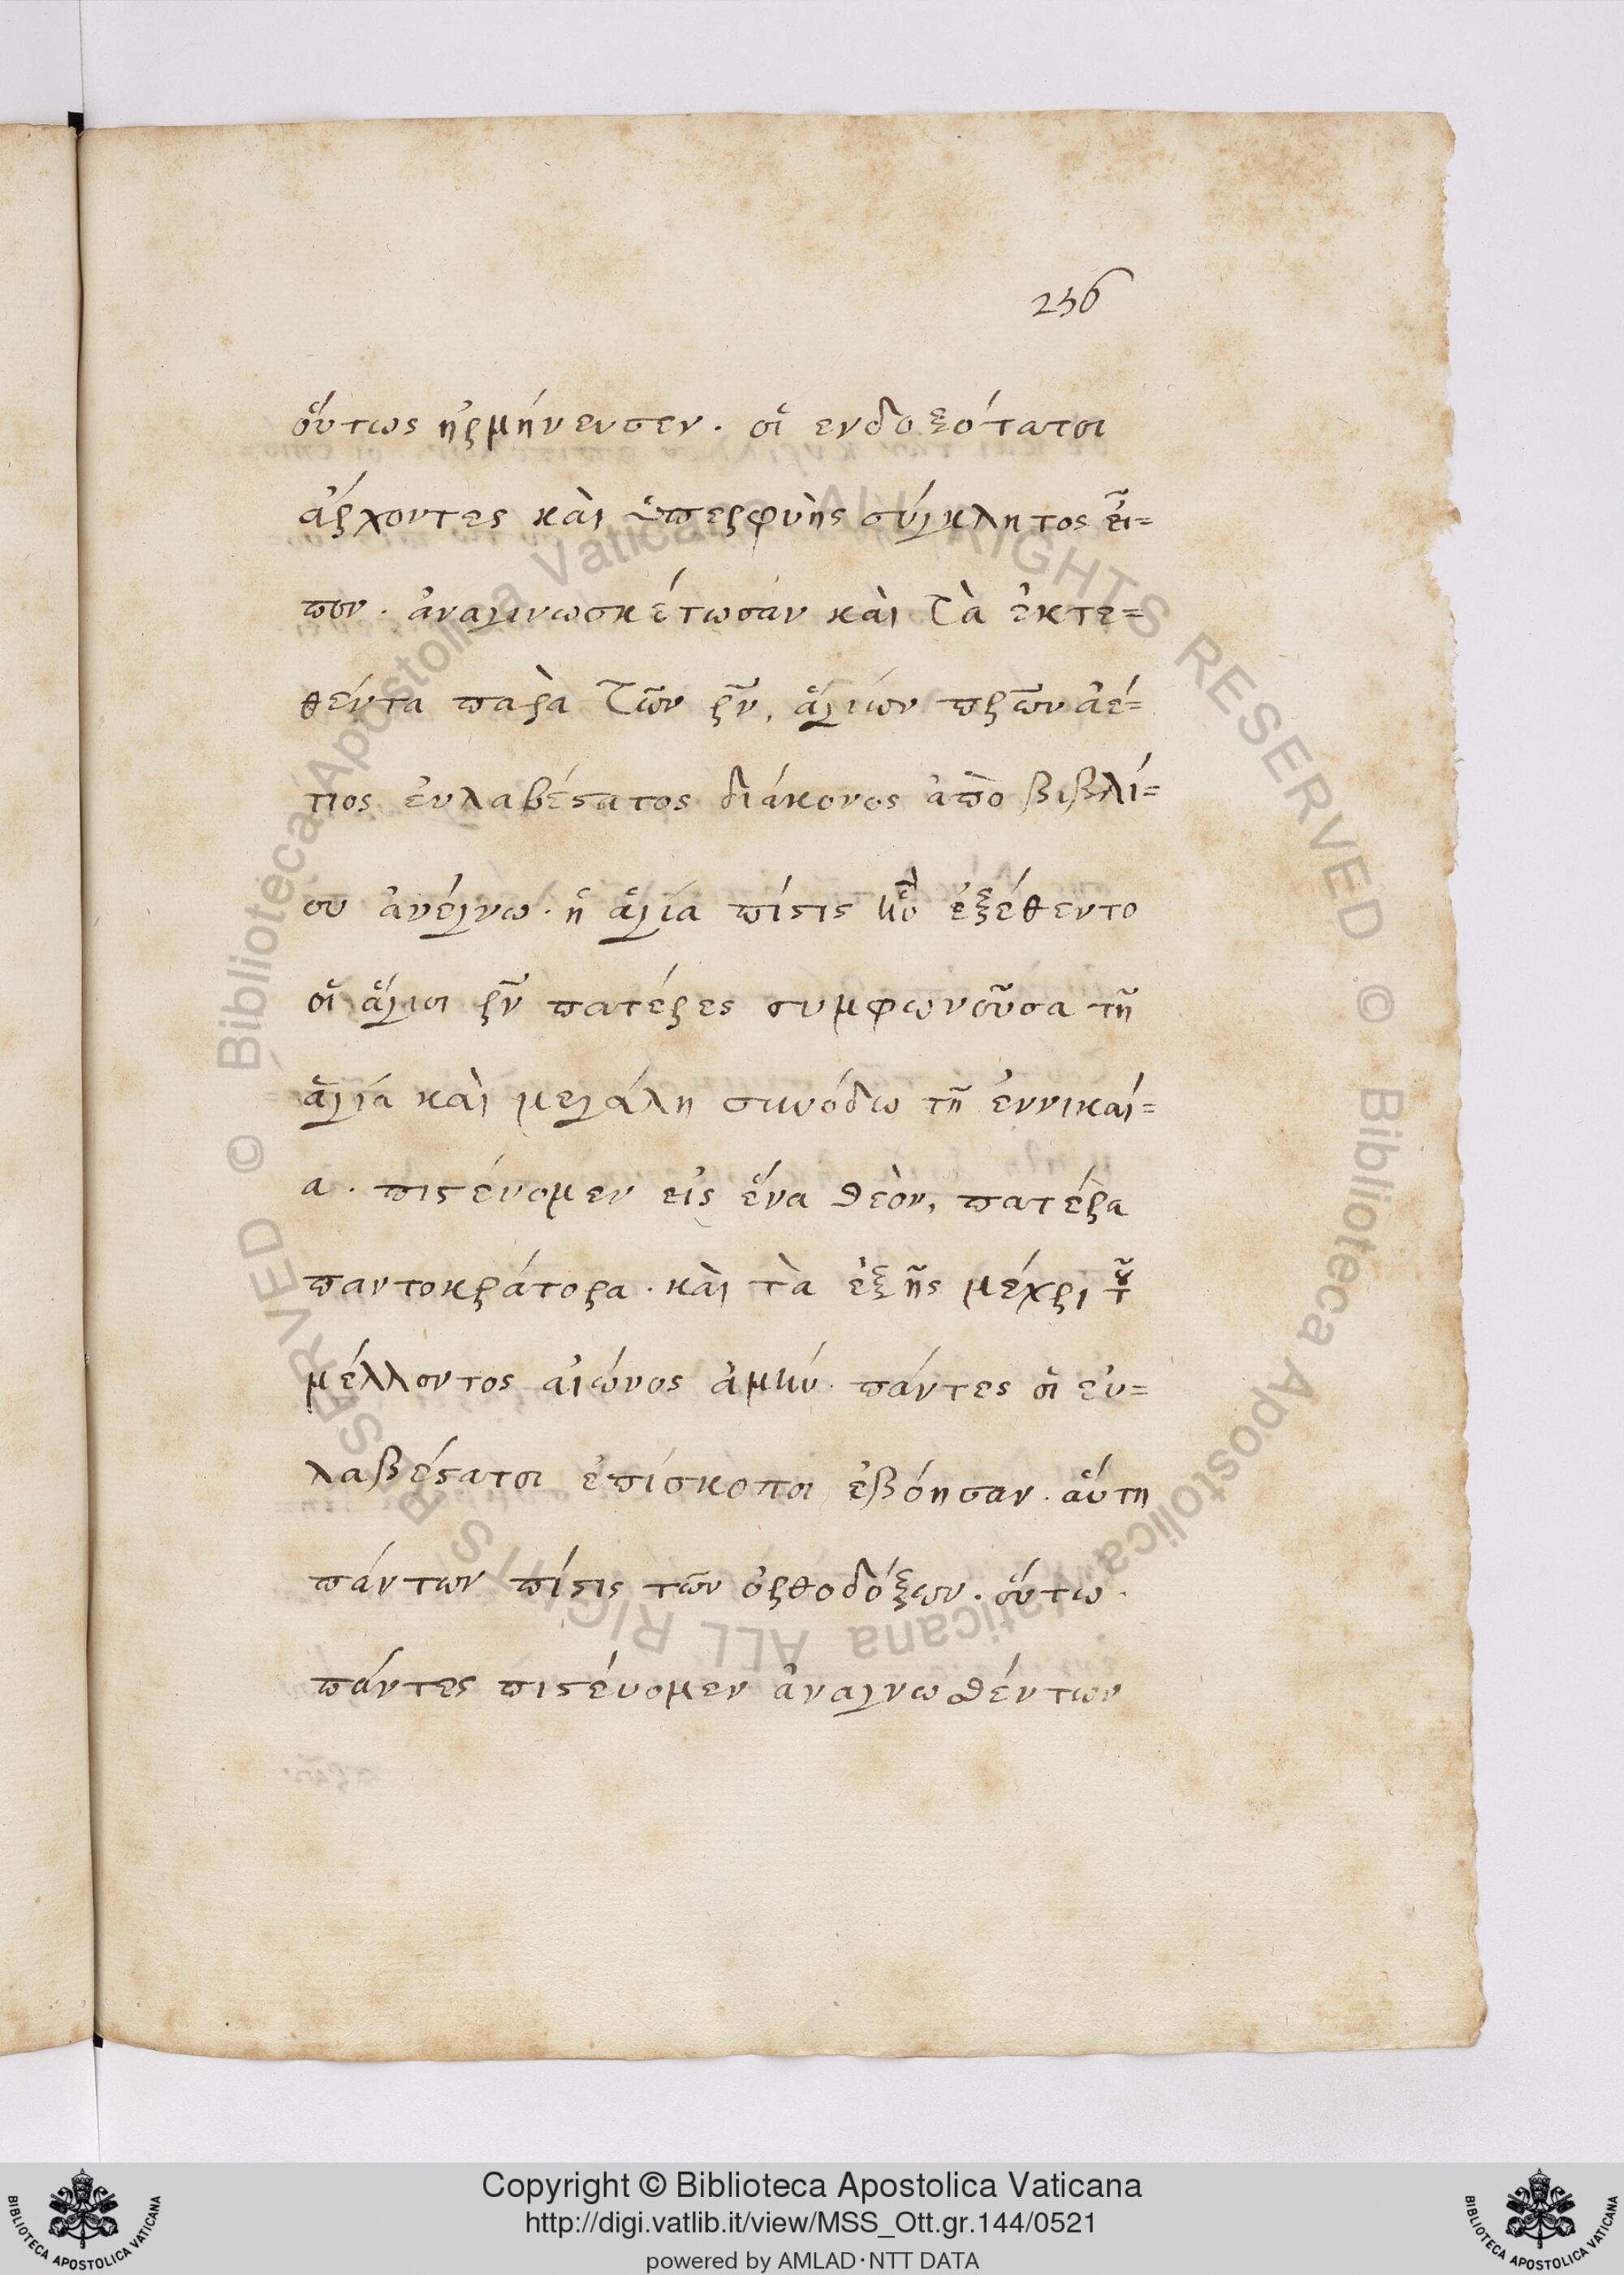 256
οὕτως ηρμήνευσεν. οἱ ενδοξότατοι
ἄρχοντες καὶ ὑπερφυὴς σύγκλητος εἶ=
πον. ἀναγινωσκέτωσαν καὶ τὰ ἐκτε=
θέντα παρὰ τῶν ρν̄, ἁγίων πρων̄ ἀέ=
τιος ἐυλαβέστατος διάκονος ἀπὸ βιβλί=
ου ἀνέγνω. ἡ ἁγία πίστις ἣν ἐξέθεντο
οἱ ἅγιοι ρν̄ πατέρες συμφωνοῦσα τῆ
ἁγία καὶ μεγάλη συνόδω τῆ ἐννικαί=
α. πιστέυομεν εἰς ἕνα θεὸν, πατέρα
παντοκράτορα. καὶ τὰ ἑξῆς μέχρι τοῦ
μέλλοντος αἰώνος ἀμήν. πάντες οἱ εὐ=
λαβέστατοι ἐπίσκοποι ἐβόησαν. ἁύτη
πάντων πίστις τῶν ὀρθοδόξων. οὕτω.
πάντες πιστέυομεν ἀναγνωσθέντων
Copyright © Biblioteca Apostolica Vaticana
http://digi.vatlib.it/view/MSS_Ott.gr.144/0521
powered by AMLAD·NTT DATA
© Biblioteca Apostolica Vaticana ALL RIGHTS RESERVED
© Biblioteca Apostolica Vaticana ALL RIGHTS RESERVED
BIBLIOTECA APOSTOLICA VATICANA
BIBLIOTECA APOSTOLICA VATICANA